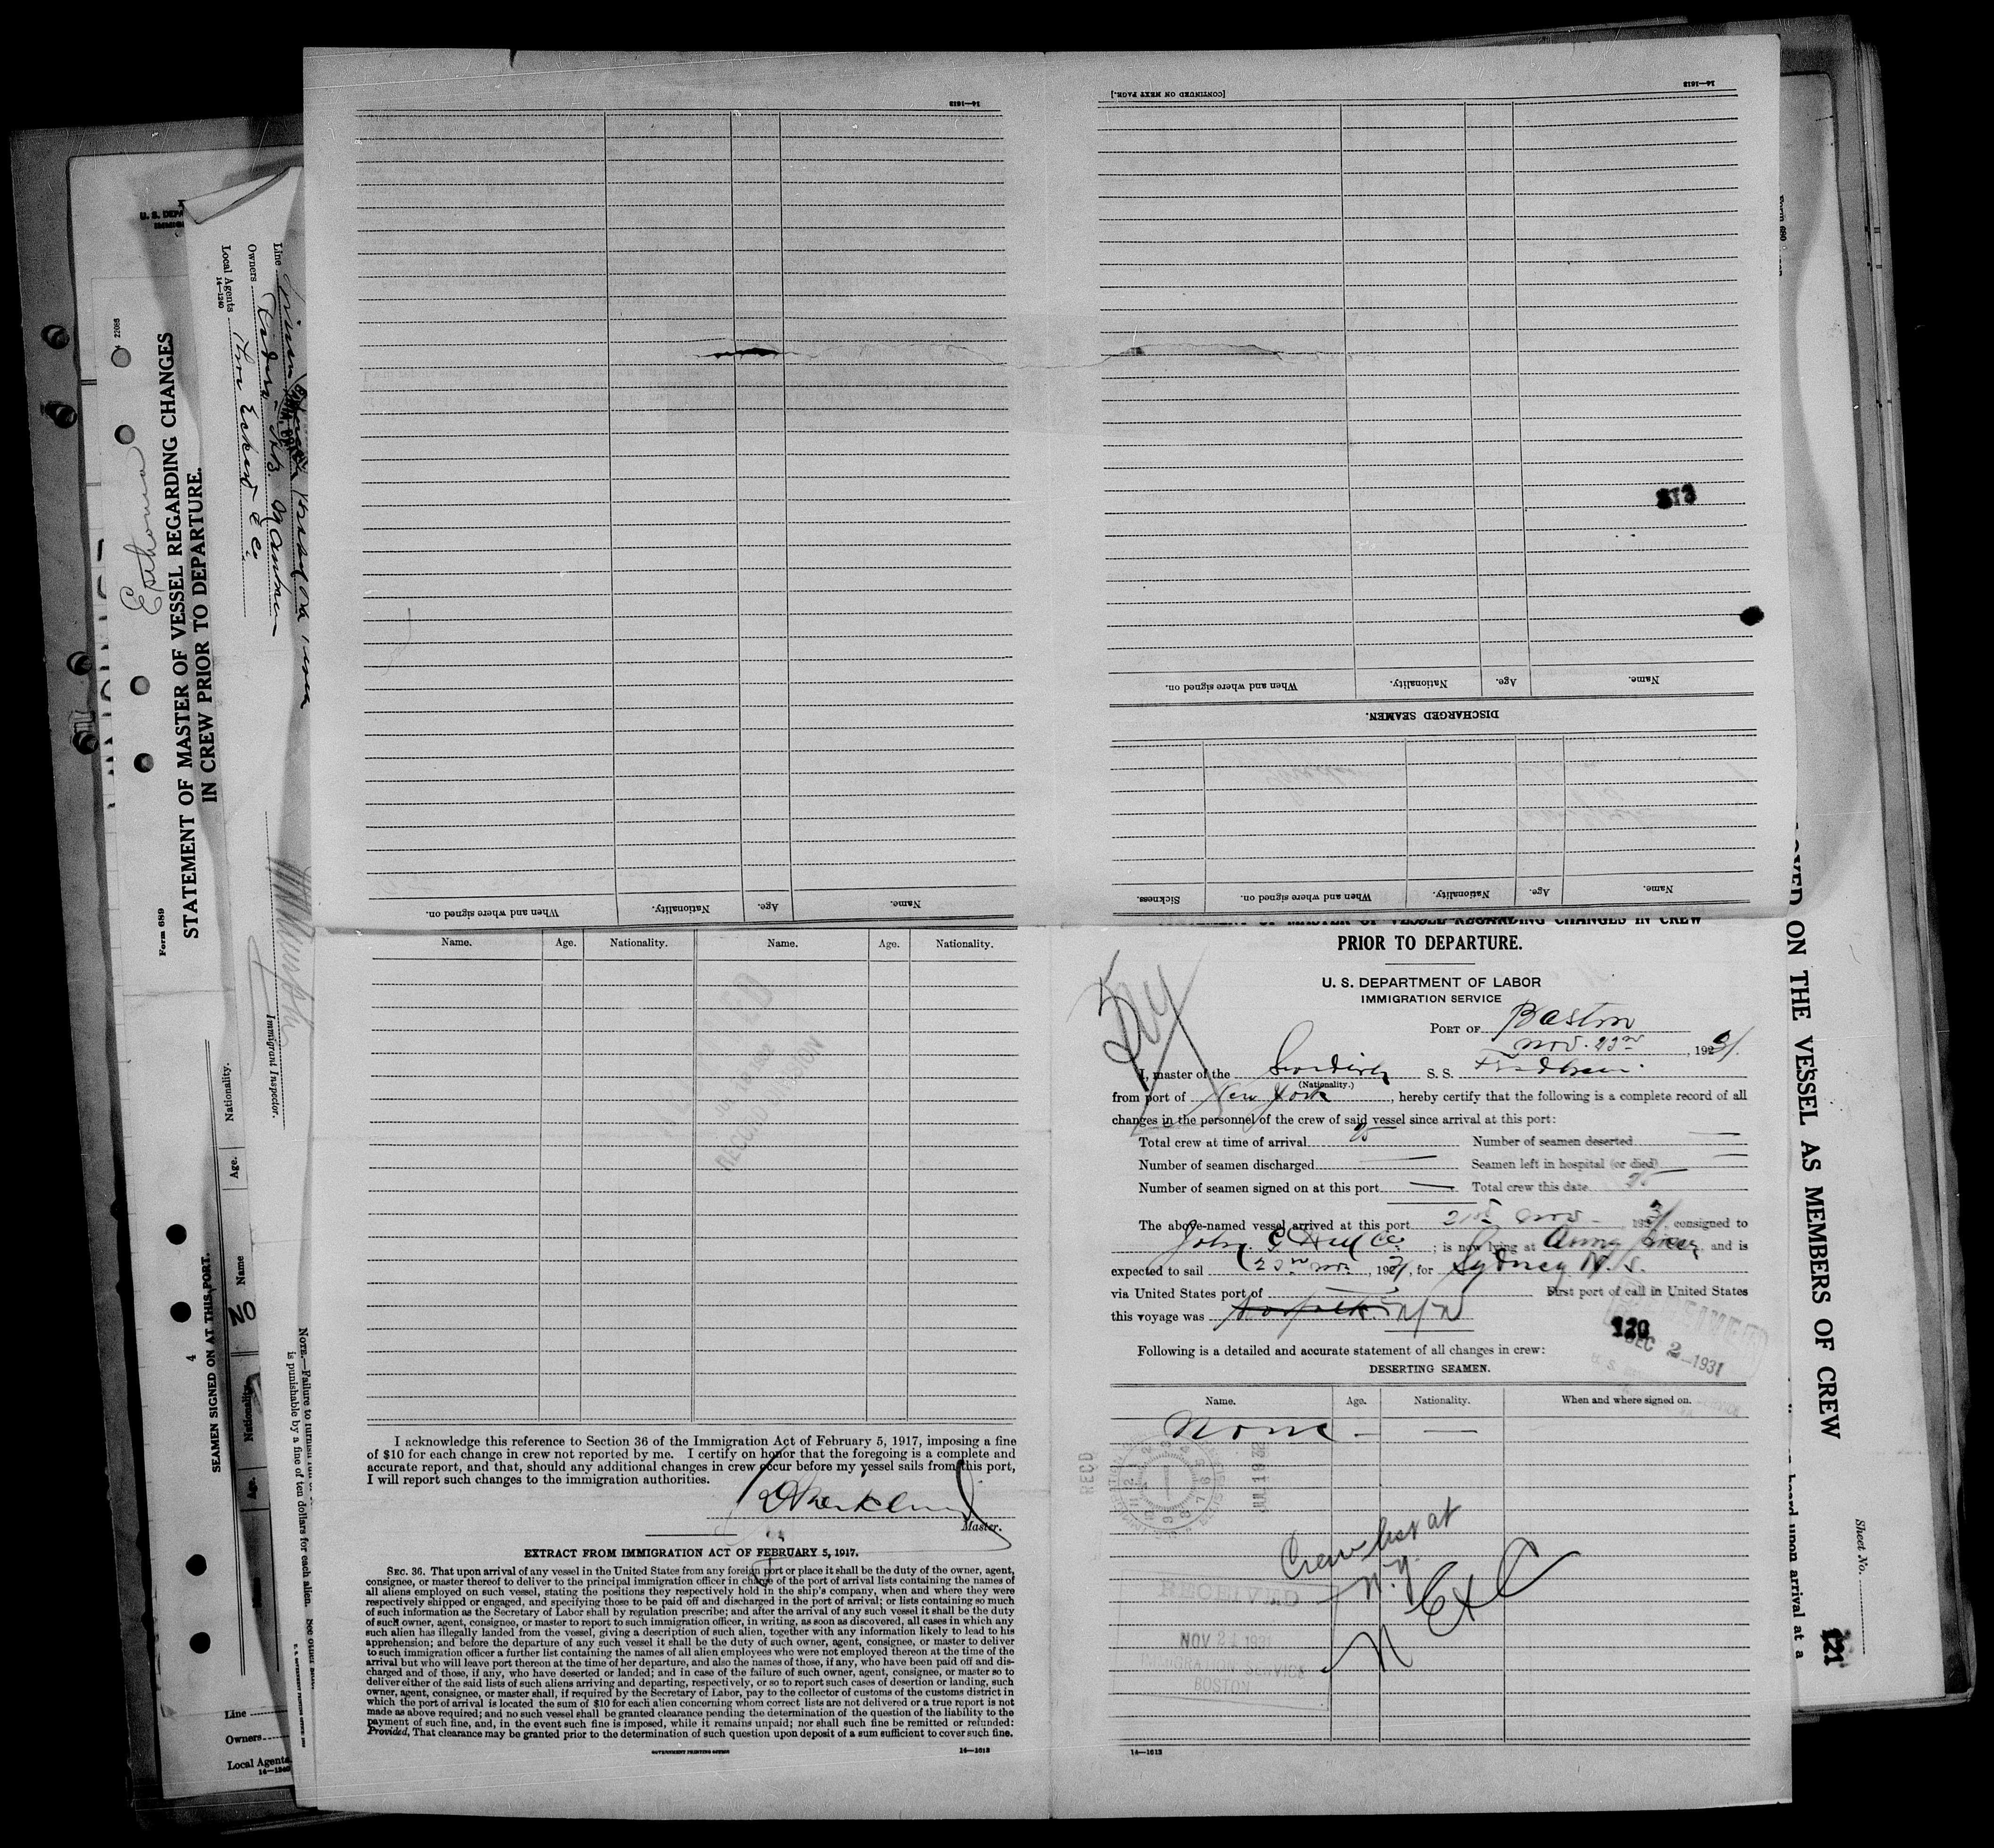 14—1613
[CONTINUED ON NEXT PAGE.]
14—1613
213
When and where signed on.
Nationality.
Age.
Name.
DISCHARGED SEAMEN.
Sickness.
When and where signed on.
Nationality.
Age.
Name.
When and where signed on.
Nationality.
Age.
Name.
Name. Age. Nationality. Name. Age. Nationality.
RECORD DIVISION
I acknowledge this reference to Section 36 of the Immigration Act of February 5, 1917, imposing a fine
of $10 for each change in crew not reported by me. I certify on honor that the foregoing is a complete and
accurate report, and that, should any additional changes in crew occur before my vessel sails from this port,
I will report such changes to the immigration authorities.
Master.
EXTRACT FROM IMMIGRATION ACT OF FEBRUARY 5, 1917.
SEC. 36. That upon arrival of any vessel in the United States from any foreign port or place it shall be the duty of the owner, agent,
consignee, or master thereof to deliver to the principal immigration officer in charge of the port of arrival lists containing the names of
all aliens employed on such vessel, stating the positions they respectively hold in the ship's company, when and where they were
respectively shipped or engaged, and specifying those to be paid off and discharged in the port of arrival; or lists containing so much
of such information as the Secretary of Labor shall by regulation prescribe; and after the arrival of any such vessel it shall be the duty
of such owner, agent, consignee, or master to report to such immigration officer, in writing, as soon as discovered, all cases in which any
such alien has illegally landed from the vessel, giving a description of such alien, together with any information likely to lead to his
apprehension; and before the departure of any such vessel it shall be the duty of such owner, agent, consignee, or master to deliver
to such immigration officer a further list containing the names of all alien employees who were not employed thereon at the time of the
arrival but who will leave port thereon at the time of her departure, and also the names of those, if any, who have been paid off and dis-
charged and of those, if any, who have deserted or landed; and in case of the failure of such owner, agent, consignee, or master so to
deliver either of the said lists of such aliens arriving and departing, respectively, or so to report such cases of desertion or landing, such
owner, agent, consignee, or master shall, if required by the Secretary of Labor, pay to the collector of customs of the customs district in
which the port of arrival is located the sum of $10 for each alien concerning whom correct lists are not delivered or a true report is not
made as above required; and no such vessel shall be granted clearance pending the determination of the question of the liability to the
payment of such fine, and, in the event such fine is imposed, while it remains unpaid; nor shall such fine be remitted or refunded:
Provided, That clearance may be granted prior to the determination of such question upon deposit of a sum sufficient to cover such fine.
GOVERNMENT PRINTING OFFICE 14—1613
MASTER OF VESSEL REGARDING CHANGES IN CREW
PRIOR TO DEPARTURE.
U. S. DEPARTMENT OF LABOR
IMMIGRATION SERVICE
PORT OF Boston
Nov. 23rd, 1931.
I, master of the S. S.
(Nationality.)
from port of New York, hereby certify that the following is a complete record of all
changes in the personnel of the crew of said vessel since arrival at this port:
Total crew at time of arrival 25 Number of seamen deserted —
Number of seamen discharged — Seamen left in hospital (or died) —
Number of seamen signed on at this port — Total crew this date 25
The above-named vessel arrived at this port 21st Nov 1931, consigned to
John G Hall Co; is now lying at Army, and is
expected to sail 23rd Nov, 1931, for Sydney N. S.
via United States port of — First port of call in United States
this voyage was Norfolk N/N
Following is a detailed and accurate statement of all changes in crew:
120
RECEIVED
DEC 2—1931
DESERTING SEAMEN.
Name. Age. Nationality. When and where signed on.
None — —
REC'D
Crew list at
N.Y.
RECEIVED
NOV 21 1931
IMMIGRATION SERVICE
BOSTON
14—1613
Form 689
STATEMENT OF MASTER OF VESSEL REGARDING CHANGES
IN CREW PRIOR TO DEPARTURE.
Line
Owners
Local Agents
14—1240
Immigrant Inspector.
4
SEAMEN SIGNED ON AT THIS PORT.
Nationality.
Age.
Name
NOTE.—Failure to furnish
is punishable by a fine of ten dollars for each alien. See other
Line
Owners
Local Agents
14—1240
Form 680
ON THE VESSEL AS MEMBERS OF CREW
board upon arrival at a
Sheet No.
121